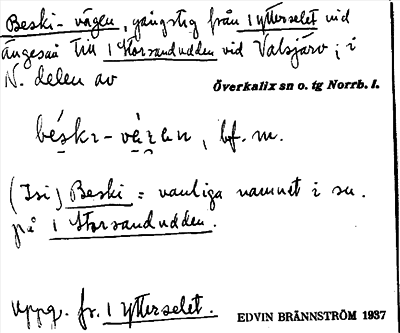 Beski-vägen, gångstig från 1 Ytterselet vid
ängesaa till 1 Storsandudden vid Valsjärv, i
N. delen av
Överkalix sn o. tg Norrb. l.
béskɩ-vé̱ran, bf. m.
(Isi) Beski = vanliga namnet i sn.
på 1 Storsandudden.
Uppg. fr. 1 Ytterselet.
EDVIN BRÄNNSTRÖM 1937